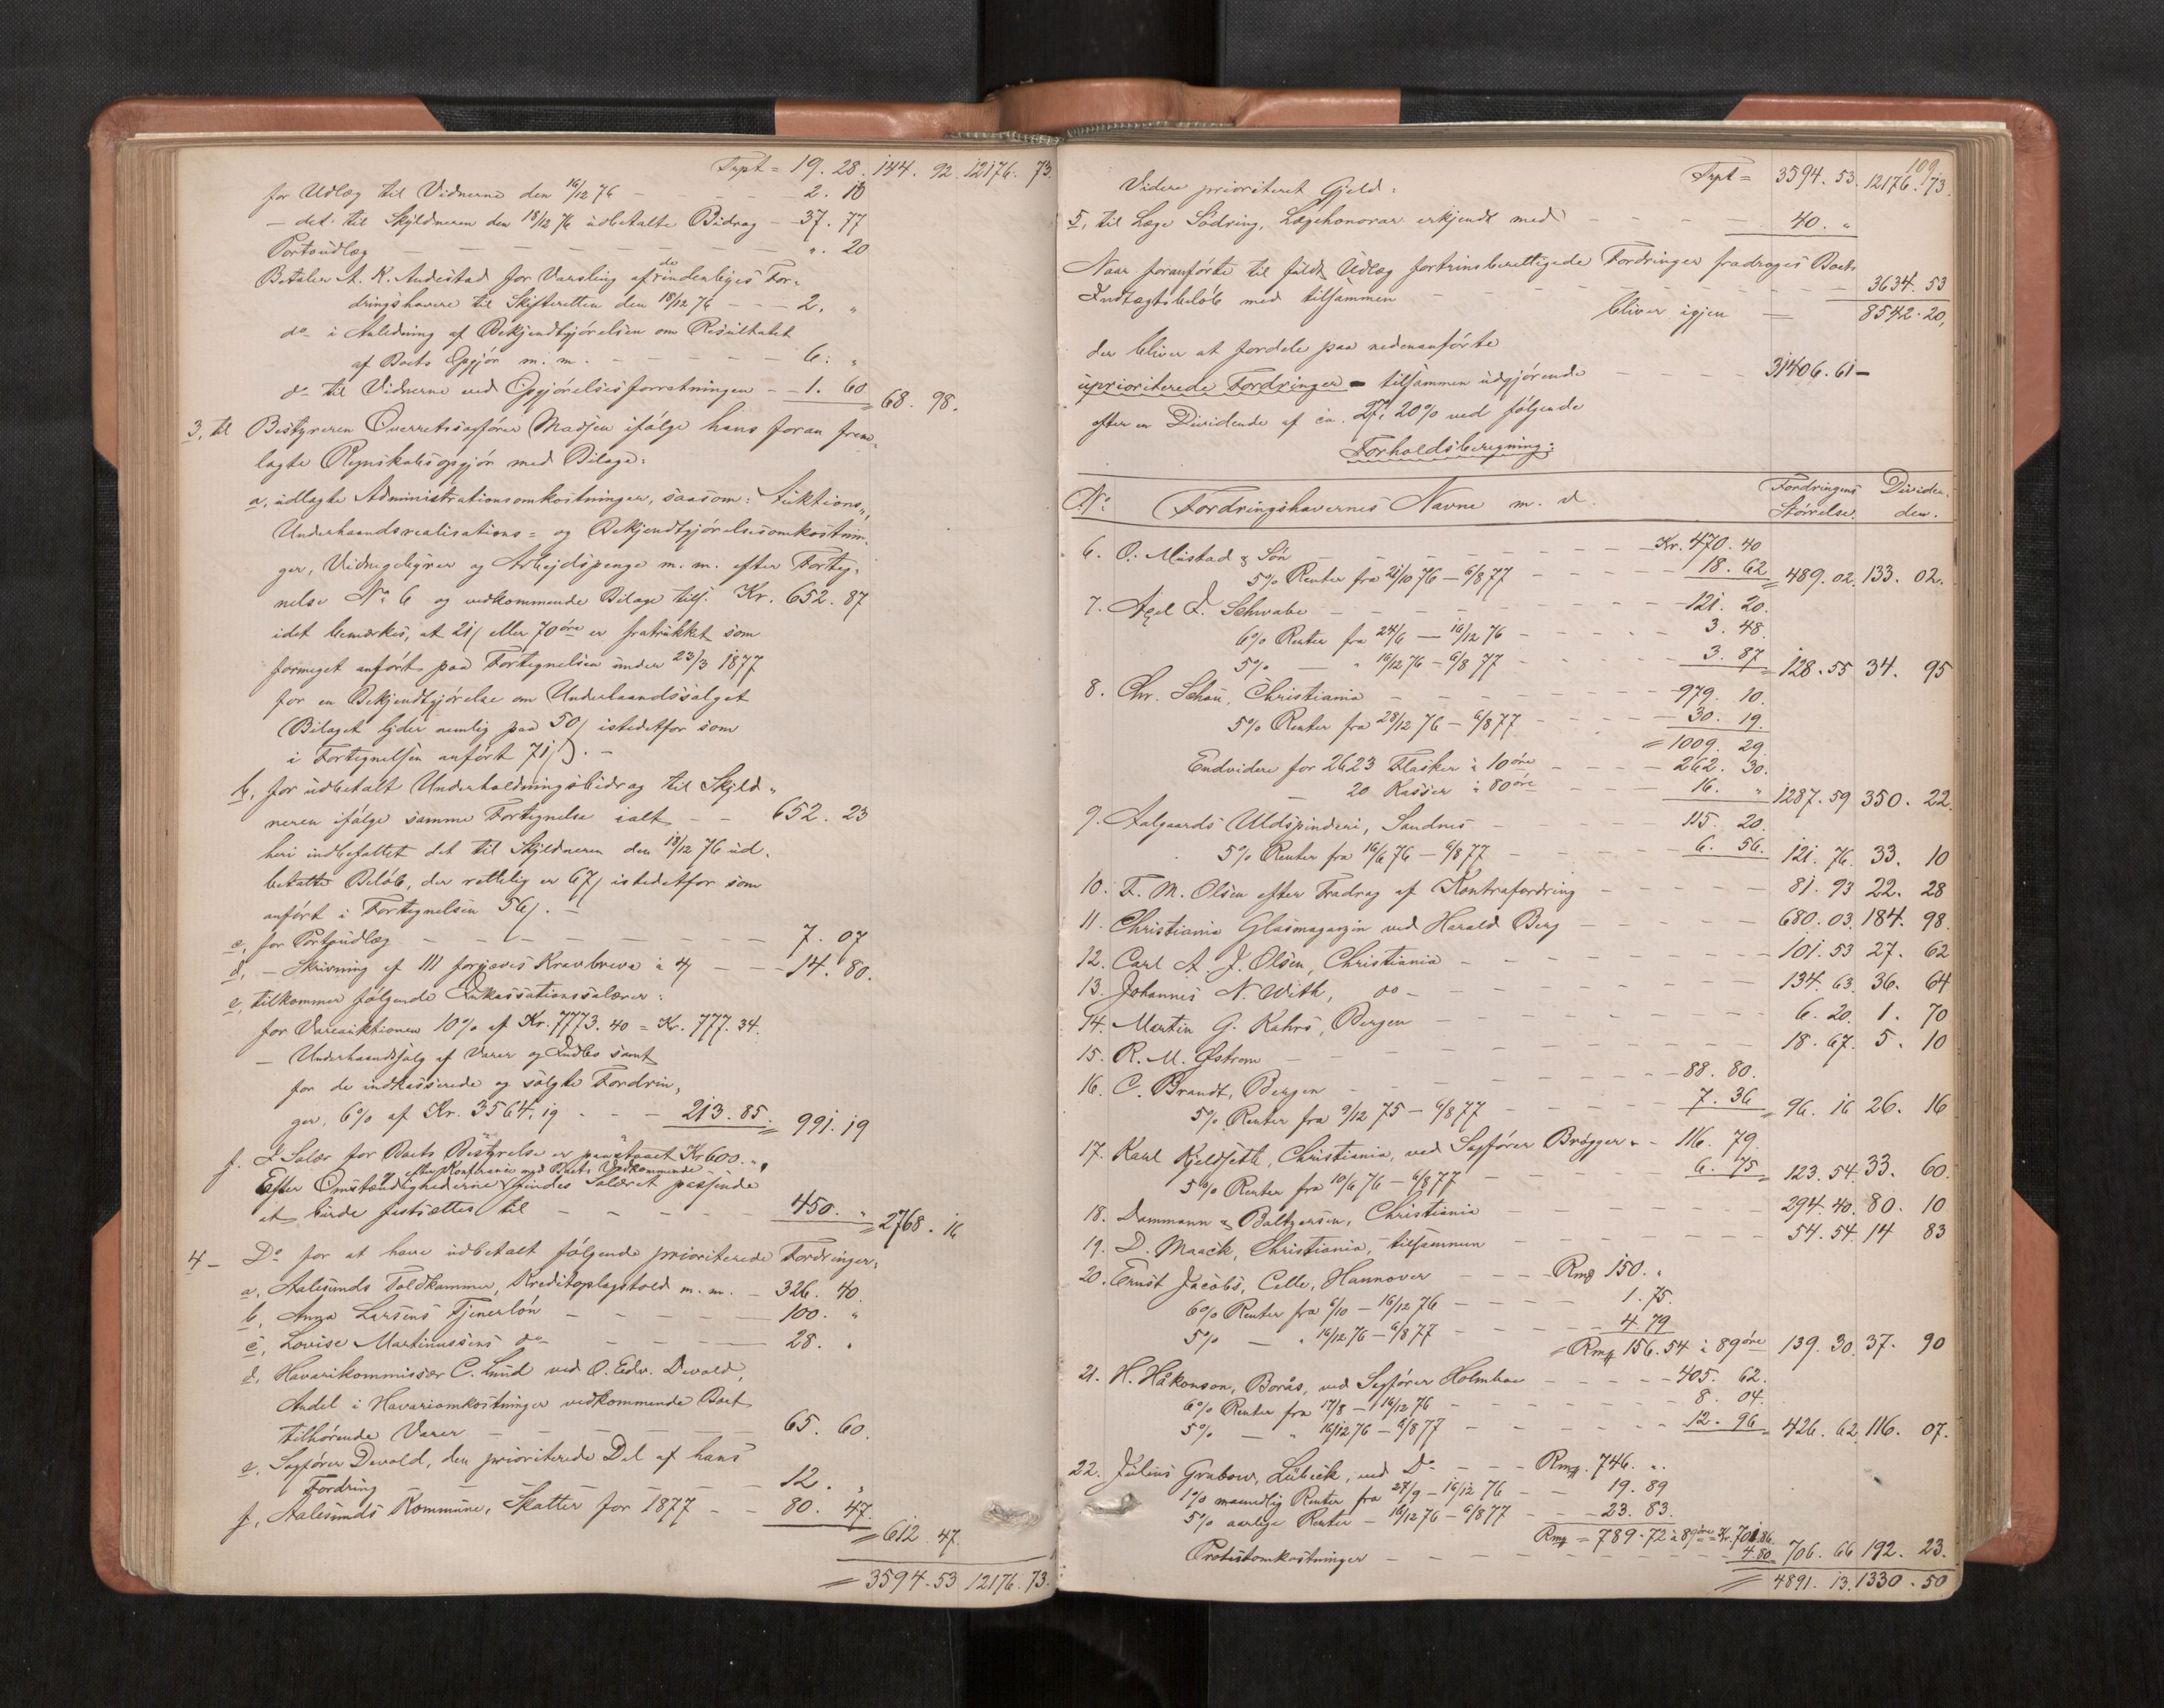 Trpt = 19. 28. 144. 92. 12176. 73.
for Udlæg til Vidnerne den 16/12 76 — 2. 10
— det til Skyldneren den 18/12 76 udbetalte Bidrag — 37. 77
Portoudlæg — „. 20
Betaler A. K. Andestad for Varsling af de indenbyes For-
dringshavere til Skifteretten den 18/12 76 — 2. „
do i Anledning af Bekjendtgjørelsen om Resultatet
af Boets Opgjør m. m. — 6. „
do til Vidnerne ved Opgjørelsesforretningen — 1. 60 = 68. 98.
3, til Bestyreren Overretssagfører Madsen ifølge hans foran frem-
lagte Regnskabsopgjør med Bilage:
a, udlagte Administrationsomkostninger, saasom: Auktions-,
Underhaandsrealisations- og Bekjendtgjørelsesomkostnin-
ger, Vidnegebyrer og Arbejdspenge m. m. efter Forteg-
nelse No 6 og vedkommende Bilage tils. Kr. 652. 87
idet bemærkes, at 21/ eller 70 øre er fratrukket som
formeget anført paa Fortegnelsen under 23/3 1877
for en Bekjendtgjørelse om Underhaandssalget
(Bilaget lyder nemlig paa 50/ istedetfor som
i Fortegnelsen anført 71/). —
b, for udbetalt Underholdningsbidrag til Skyld-
neren ifølge samme Fortegnelse ialt — 652. 23
heri indbefattet det til Skyldneren den 18/12 76 ud-
betalte Beløb, der rettelig er 67/ istedetfor som
anført i Fortegnelsen 56/. —
c, for Portoudlæg — 7. 07
d, — Skrivning af 111 forgjæves Kravbreve à 4/ — 14. 80.
e, tilkommer følgende Inkassationssalærer:
for Vareauktionen 10% af Kr. 7773. 40 = Kr. 777. 34.
— Underhaandssalg af Varer og Indbo samt
for de indkasserede og solgte Fordrin-
ger, 6% af Kr. 3564. 19 — 213. 85. = 991. 19
f. I Salær for Boets Bestyrelse er paastaaet Kr 600. „,
efter Konference med Boets Vedkommende
Efter Omstændighederne findes Salæret passende
at burde fastsættes til — 450. „ = 2768. 16
4 — Do for at have udbetalt følgende prioriterede Fordringer:
a, Aalesunds Toldkammer, Kreditoplagstold m. m. — 326. 40.
b, Anna Larsens Tjenerløn — 100. „
c, Lovise Martinussens do — 28. „
d, Havarikommissær C. Lund ved O. Edv. Devold,
Andel i Havariomkostninger vedkommende Boet
tilhørende Varer — 65. 60.
e, Sagfører Devold, den prioriterede Del af hans
Fordring — 12. „
f, Aalesunds Kommune, Skatter for 1877 — 80. 47.
= 612. 47.
= 3594. 53 12176. 73.
109
Videre prioriteret Gjeld: Trpt = 3594. 53. 12176. 73.
5, til Læge Sødring, Lægehonorar erkjendt med — 40. „
Naar foranførte til fuldt Udlæg fortrinsberettigede Fordringer fradrages Boets
Indtægtsbeløb med tilsammen — 3634. 53
bliver igjen — 8542. 20,
der bliver at fordele paa nedenanførte
uprioriterede Fordringer — tilsammen udgjørende — 31406. 61 —
efter en Dividende af ca. 27, 20% ved følgende
Forholdsberegning:
No. Fordringshavernes Navne m. v. Fordringens Størrelse. Dividen-den.
6. O. Mustad & Søn — Kr. 470. 40
5% Renter fra 21/10 76 — 6/8 77 — 18. 62 = 489. 02. 133. 02.
7. Axel F. Schwabe — 121. 20.
6% Renter fra 24/6 — 16/12 76 — 3. 48.
5% — „ 16/12 76 — 6/8 77 — 3. 87 = 128. 55 34. 95
8. Chr. Schou, Christiania — 979. 10.
5% Renter fra 28/12 76 — 6/8 77 — 30. 19.
= 1009. 29.
Endvidere for 2623 Flasker à 10 øre — 262. 30.
— 20 Kasser à 80 øre — 16. „ 1287. 59 350. 22.
9. Aalgaards Uldspinderi, Sandnes — 115. 20.
5% Renter fra 16/6 76 — 6/8 77 — 6. 56. 121. 76. 33. 10
10. F. M. Olsen efter Fradrag af Kontrafordring — 81. 93 22. 28
11. Christiania Glasmagazin ved Harald Berg — 680. 03. 184. 98.
12. Carl A. J. Olsen, Christiania — 101. 53 27. 62
13. Johannes N. With, do — 134. 63. 36. 64
14. Martin G. Kahrs, Bergen — 6. 20. 1. 70
15. R. M. Østrem — 18. 67. 5. 10
16. C. Brandt, Bergen — 88. 80.
5% Renter fra 9/12 75 — 6/8 77 — 7. 36 = 96. 16 26. 16
17. Karl Kjeldseth, Christiania, ved Sagfører Brøgger — 116. 79.
5% Renter fra 10/6 76 — 6/8 77 — 6. 75 = 123. 54. 33. 60.
18. Dammann & Baltzersen, Christiania — 294. 40. 80. 10
19. D. Maack, Christiania, tilsammen — 54. 54. 14 83
20. Ernst Jacobs, Celle, Hannover — Rmk 150. „
6% Renter fra 6/10 — 16/12 76 — 1. 75.
5% — „ 16/12 76 — 6/8 77 — 4. 79
= Rmk 156. 54 à 89 øre 139. 30. 37. 90
21. H. Håkonson, Borås, ved Sagfører Holmboe — 405. 62.
6% Renter fra 17/8 — 16/12 76 — 8. 04.
5% — „ 16/12 76 — 6/8 77 — 12. 96 = 426. 62. 116. 07.
22. Julius Grabow, Lübeck, ved Do — Rmk. 746. „
1% maanedlig Renter fra 27/9 — 16/12 76 — 19. 89
5% aarlige Renter — 16/12 76 — 6/8 77 — 23. 83.
Rmk = 789. 72 à 89 øre = Kr. 701. 86.
Protestomkostninger — 4. 80 = 706. 66 192. 23.
= 4891. 13. 1330. 50